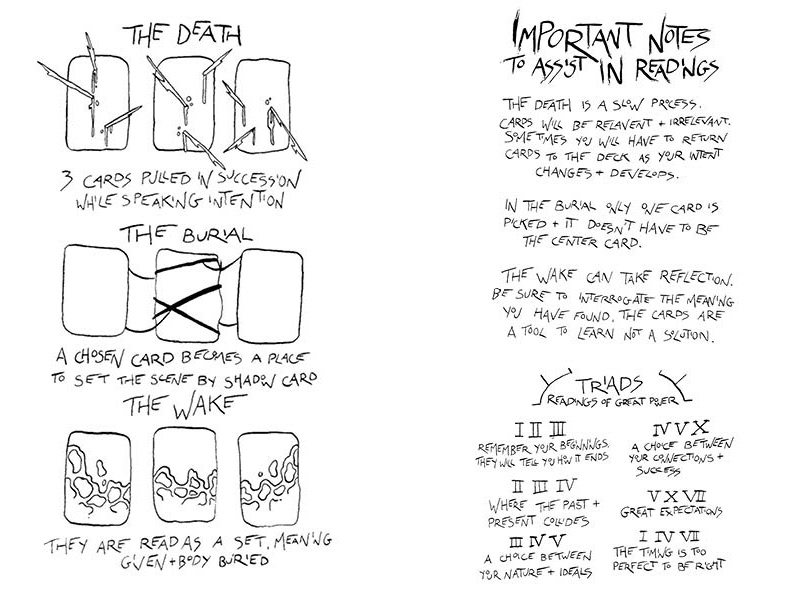 THE DEATH
3 CARDS PULLED IN SUCCESSION
WHILE SPEAKING INTENTION
THE BURIAL
A CHOSEN CARD BECOMES A PLACE
TO SET THE SCENE BY SHADOW CARD
THE WAKE
THEY ARE READ AS A SET, MEANING
GIVEN + BODY BURIED
IMPORTANT NOTES
TO ASSIST IN READINGS
THE DEATH IS A SLOW PROCESS.
CARDS WILL BE RELAVENT + IRRELEVANT.
SOMETIMES YOU WILL HAVE TO RETURN
CARDS TO THE DECK AS YOUR INTENT
CHANGES + DEVELOPS.
IN THE BURIAL ONLY ONE CARD IS
PICKED + IT DOESN'T HAVE TO BE
THE CENTER CARD.
THE WAKE CAN TAKE REFLECTION.
BE SURE TO INTERROGATE THE MEANING
YOU HAVE FOUND. THE CARDS ARE
A TOOL TO LEARN NOT A SOLUTION.
TRIADS
READINGS OF GREAT POWER
I II III
REMEMBER YOUR BEGINNINGS.
THEY WILL TELL YOU HOW IT ENDS
II III IV
WHERE THE PAST +
PRESENT COLLIDES
III IV V
A CHOICE BETWEEN
YOUR NATURE + IDEALS
IV V X
A CHOICE BETWEEN
YOUR CONNECTIONS +
SUCCESS
V X VII
GREAT EXPECTATIONS
I IV VII
THE TIMING IS TOO
PERFECT TO BE RIGHT